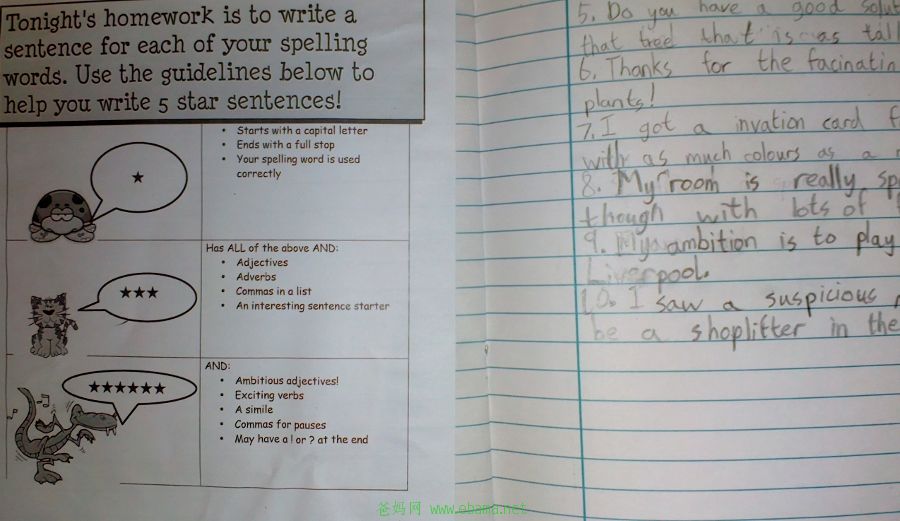 Tonight's homework is to write a
sentence for each of your spelling
words. Use the guidelines below to
help you write 5 star sentences!
Starts with a capital letter
Ends with a full stop
Your spelling word is used
correctly
Has ALL of the above AND:
Adjectives
Adverbs
Commas in a list
An interesting sentence starter
AND:
Ambitious adjectives!
Exciting verbs
A simile
Commas for pauses
May have a ! or ? at the end
5. Do you have a good
that tree that is as
6. Thanks for the
plants!
7. I got a invation card
with as much colours as a
8. My room is really
though with lots of
9. My ambition is to play
Liverpool.
10. I saw a suspicious
be a shoplifter in the
爸妈网 www.ebama.net